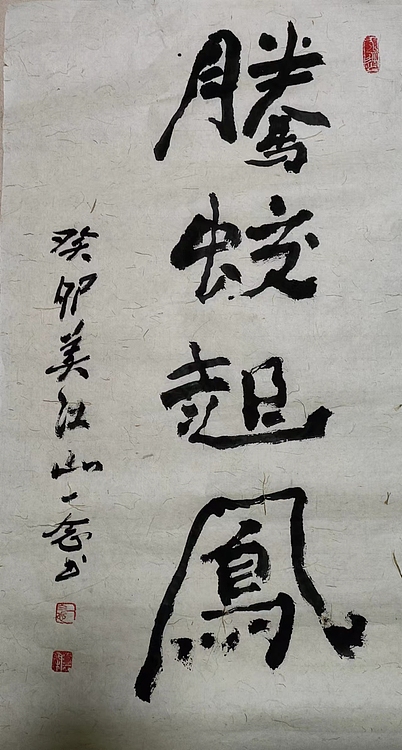 騰蛟起鳳
癸卯美江山一念书